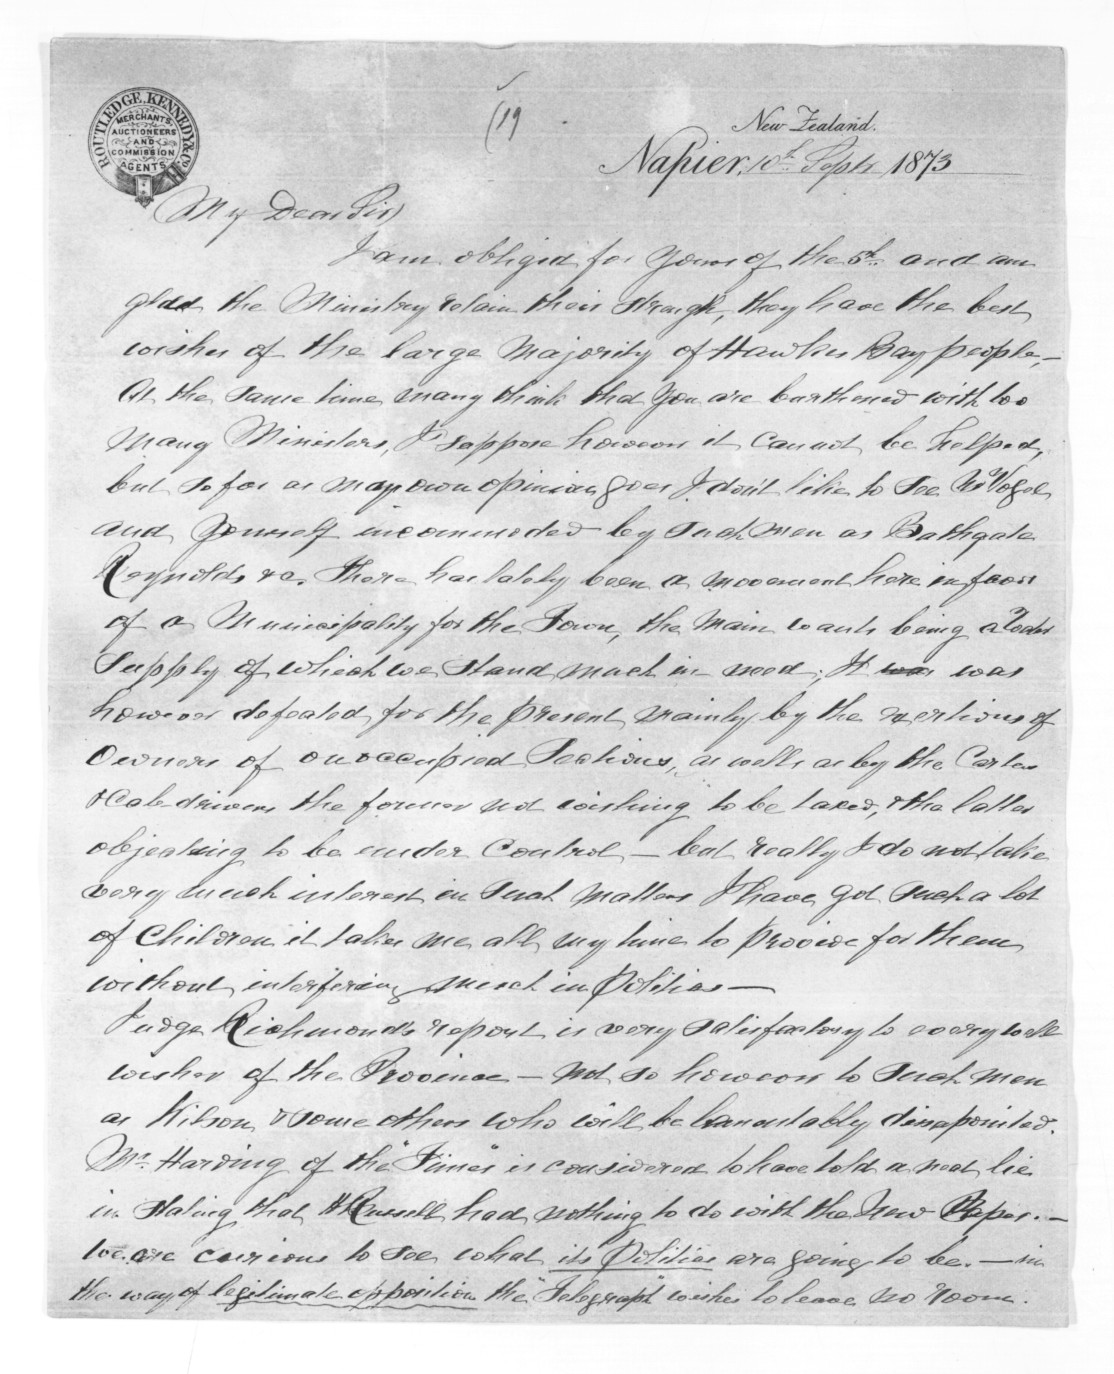 ROUTLEDGE, KENNEDY & Co.
MERCHANTS,
AUCTIONEERS
AND
COMMISSION
AGENTS
(19
New Zealand.
Napier, 10th Septr 1873
My Dear Sir
I am obliged for yours of the 5th and am
glad the Ministry retain their strength, they have the best
wishes of the large Majority of Hawkes Bay people,—
At the same time many think that you are burthened with too
Many Ministers, I suppose however it cannot be helped,
but so far as my own opinion goes I don't like to see Mr Vogel
and yourself incommoded by such men as Bathgate
Reynolds &c. There has lately been a movement here in favor
of a Municipality for the Town, the main wants being a Water
Supply of which we stand much in need; It was was
however defeated for the present mainly by the exertions of
Owners of unoccupied Sections, as well as by the Carters
& Cab drivers the former not wishing to be taxed, & the latter
objecting to be under Control — but really I do not take
very much interest in such matters I have got such a lot
of Children it takes me all my time to provide for them
without interfering much in Politics —
Judge Richmond's report is very satisfactory to every well
wisher of the Province — not so however to such men
as Wilson & some others who will be lamentably disapointed.
Mr. Harding of the "Times" is considered to have told a neat lie
in stating that H Russell had nothing to do with the New Paper. —
We are curious to see what its Politics are going to be. — in
the way of legitimate opposition the "Telegraph" wishes to leave no room.